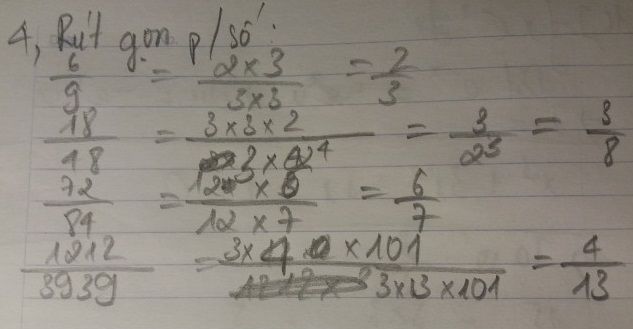 4, Rút gọn p/số:
6/9 = 2×3/3×3 = 2/3
18/48 = 3×3×2/3×2⁴ = 3/2³ = 3/8
72/84 = 12×6/12×7 = 6/7
1212/3939 = 3×4×101/3×13×101 = 4/13